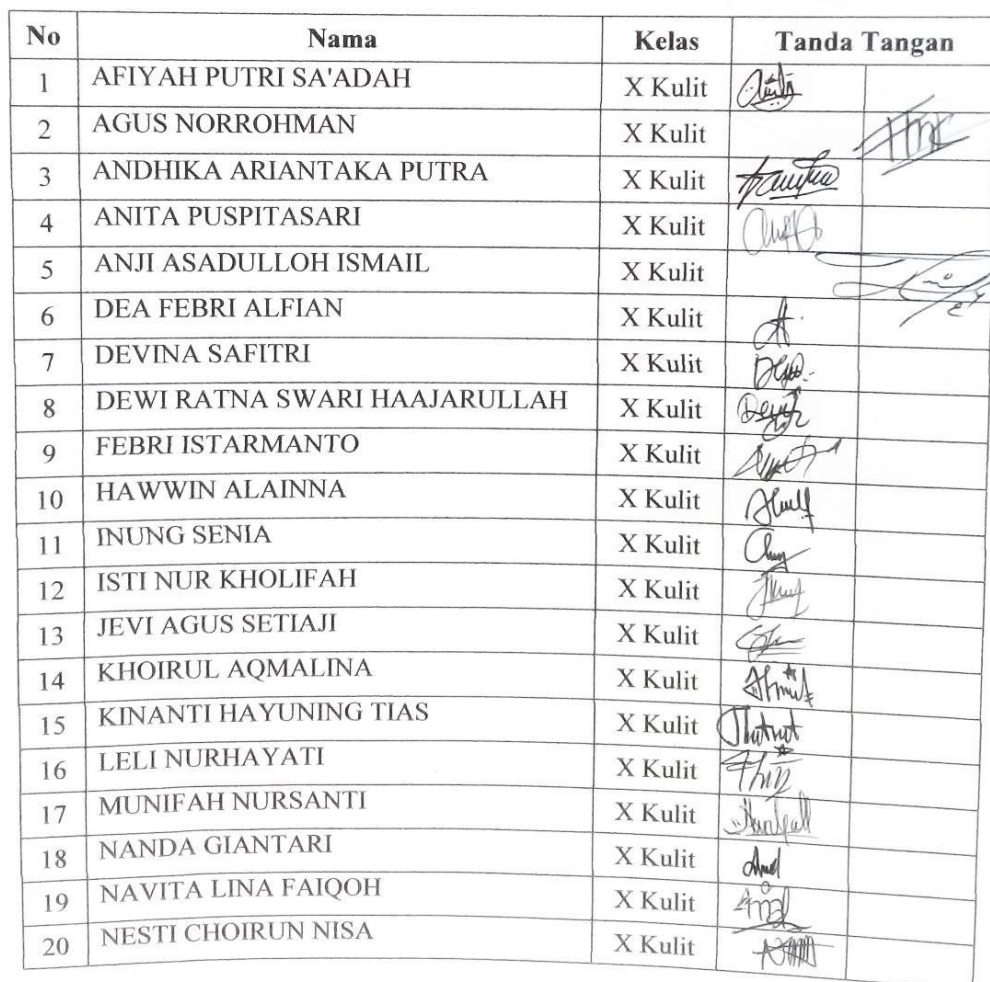 No Nama Kelas Tanda Tangan
1 AFIYAH PUTRI SA'ADAH X Kulit
2 AGUS NORROHMAN X Kulit
3 ANDHIKA ARIANTAKA PUTRA X Kulit
4 ANITA PUSPITASARI X Kulit
5 ANJI ASADULLOH ISMAIL X Kulit
6 DEA FEBRI ALFIAN X Kulit
7 DEVINA SAFITRI X Kulit
8 DEWI RATNA SWARI HAAJARULLAH X Kulit
9 FEBRI ISTARMANTO X Kulit
10 HAWWIN ALAINNA X Kulit
11 INUNG SENIA X Kulit
12 ISTI NUR KHOLIFAH X Kulit
13 JEVI AGUS SETIAJI X Kulit
14 KHOIRUL AQMALINA X Kulit
15 KINANTI HAYUNING TIAS X Kulit
16 LELI NURHAYATI X Kulit
17 MUNIFAH NURSANTI X Kulit
18 NANDA GIANTARI X Kulit
19 NAVITA LINA FAIQOH X Kulit
20 NESTI CHOIRUN NISA X Kulit